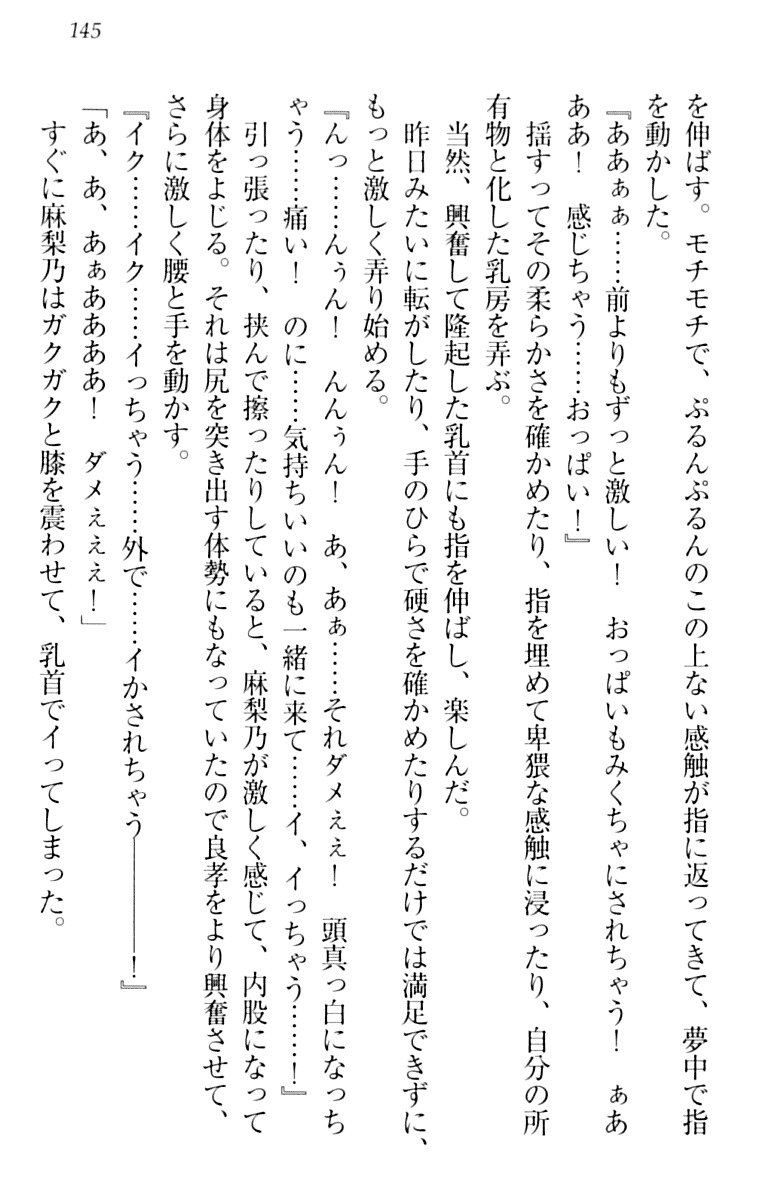 145
を伸ばす。モチモチで、ぷるんぷるんのこの上ない感触が指に返ってきて、夢中で指
を動かした。
『ああぁぁ……前よりもずっと激しい！　おっぱいもみくちゃにされちゃう！　ぁあ
ああ！　感じちゃう……おっぱい！』
揺すってその柔らかさを確かめたり、指を埋めて卑猥な感触に浸ったり、自分の所
有物と化した乳房を弄ぶ。
当然、興奮して隆起した乳首にも指を伸ばし、楽しんだ。
昨日みたいに転がしたり、手のひらで硬さを確かめたりするだけでは満足できずに、
もっと激しく弄り始める。
『んっ……んぅん！　んんぅん！　あ、あぁ……それダメぇぇ！　頭真っ白になっち
ゃう……痛い！　のに……気持ちいいのも一緒に来て……イ、イっちゃう……！』
引っ張ったり、挟んで擦ったりしていると、麻梨乃が激しく感じて、内股になって
身体をよじる。それは尻を突き出す体勢にもなっていたので良孝をより興奮させて、
さらに激しく腰と手を動かす。
『イク……イク……イっちゃう……外で……イかされちゃう――――！』
「あ、あ、あぁああああ！　ダメぇぇぇ！」
すぐに麻梨乃はガクガクと膝を震わせて、乳首でイってしまった。